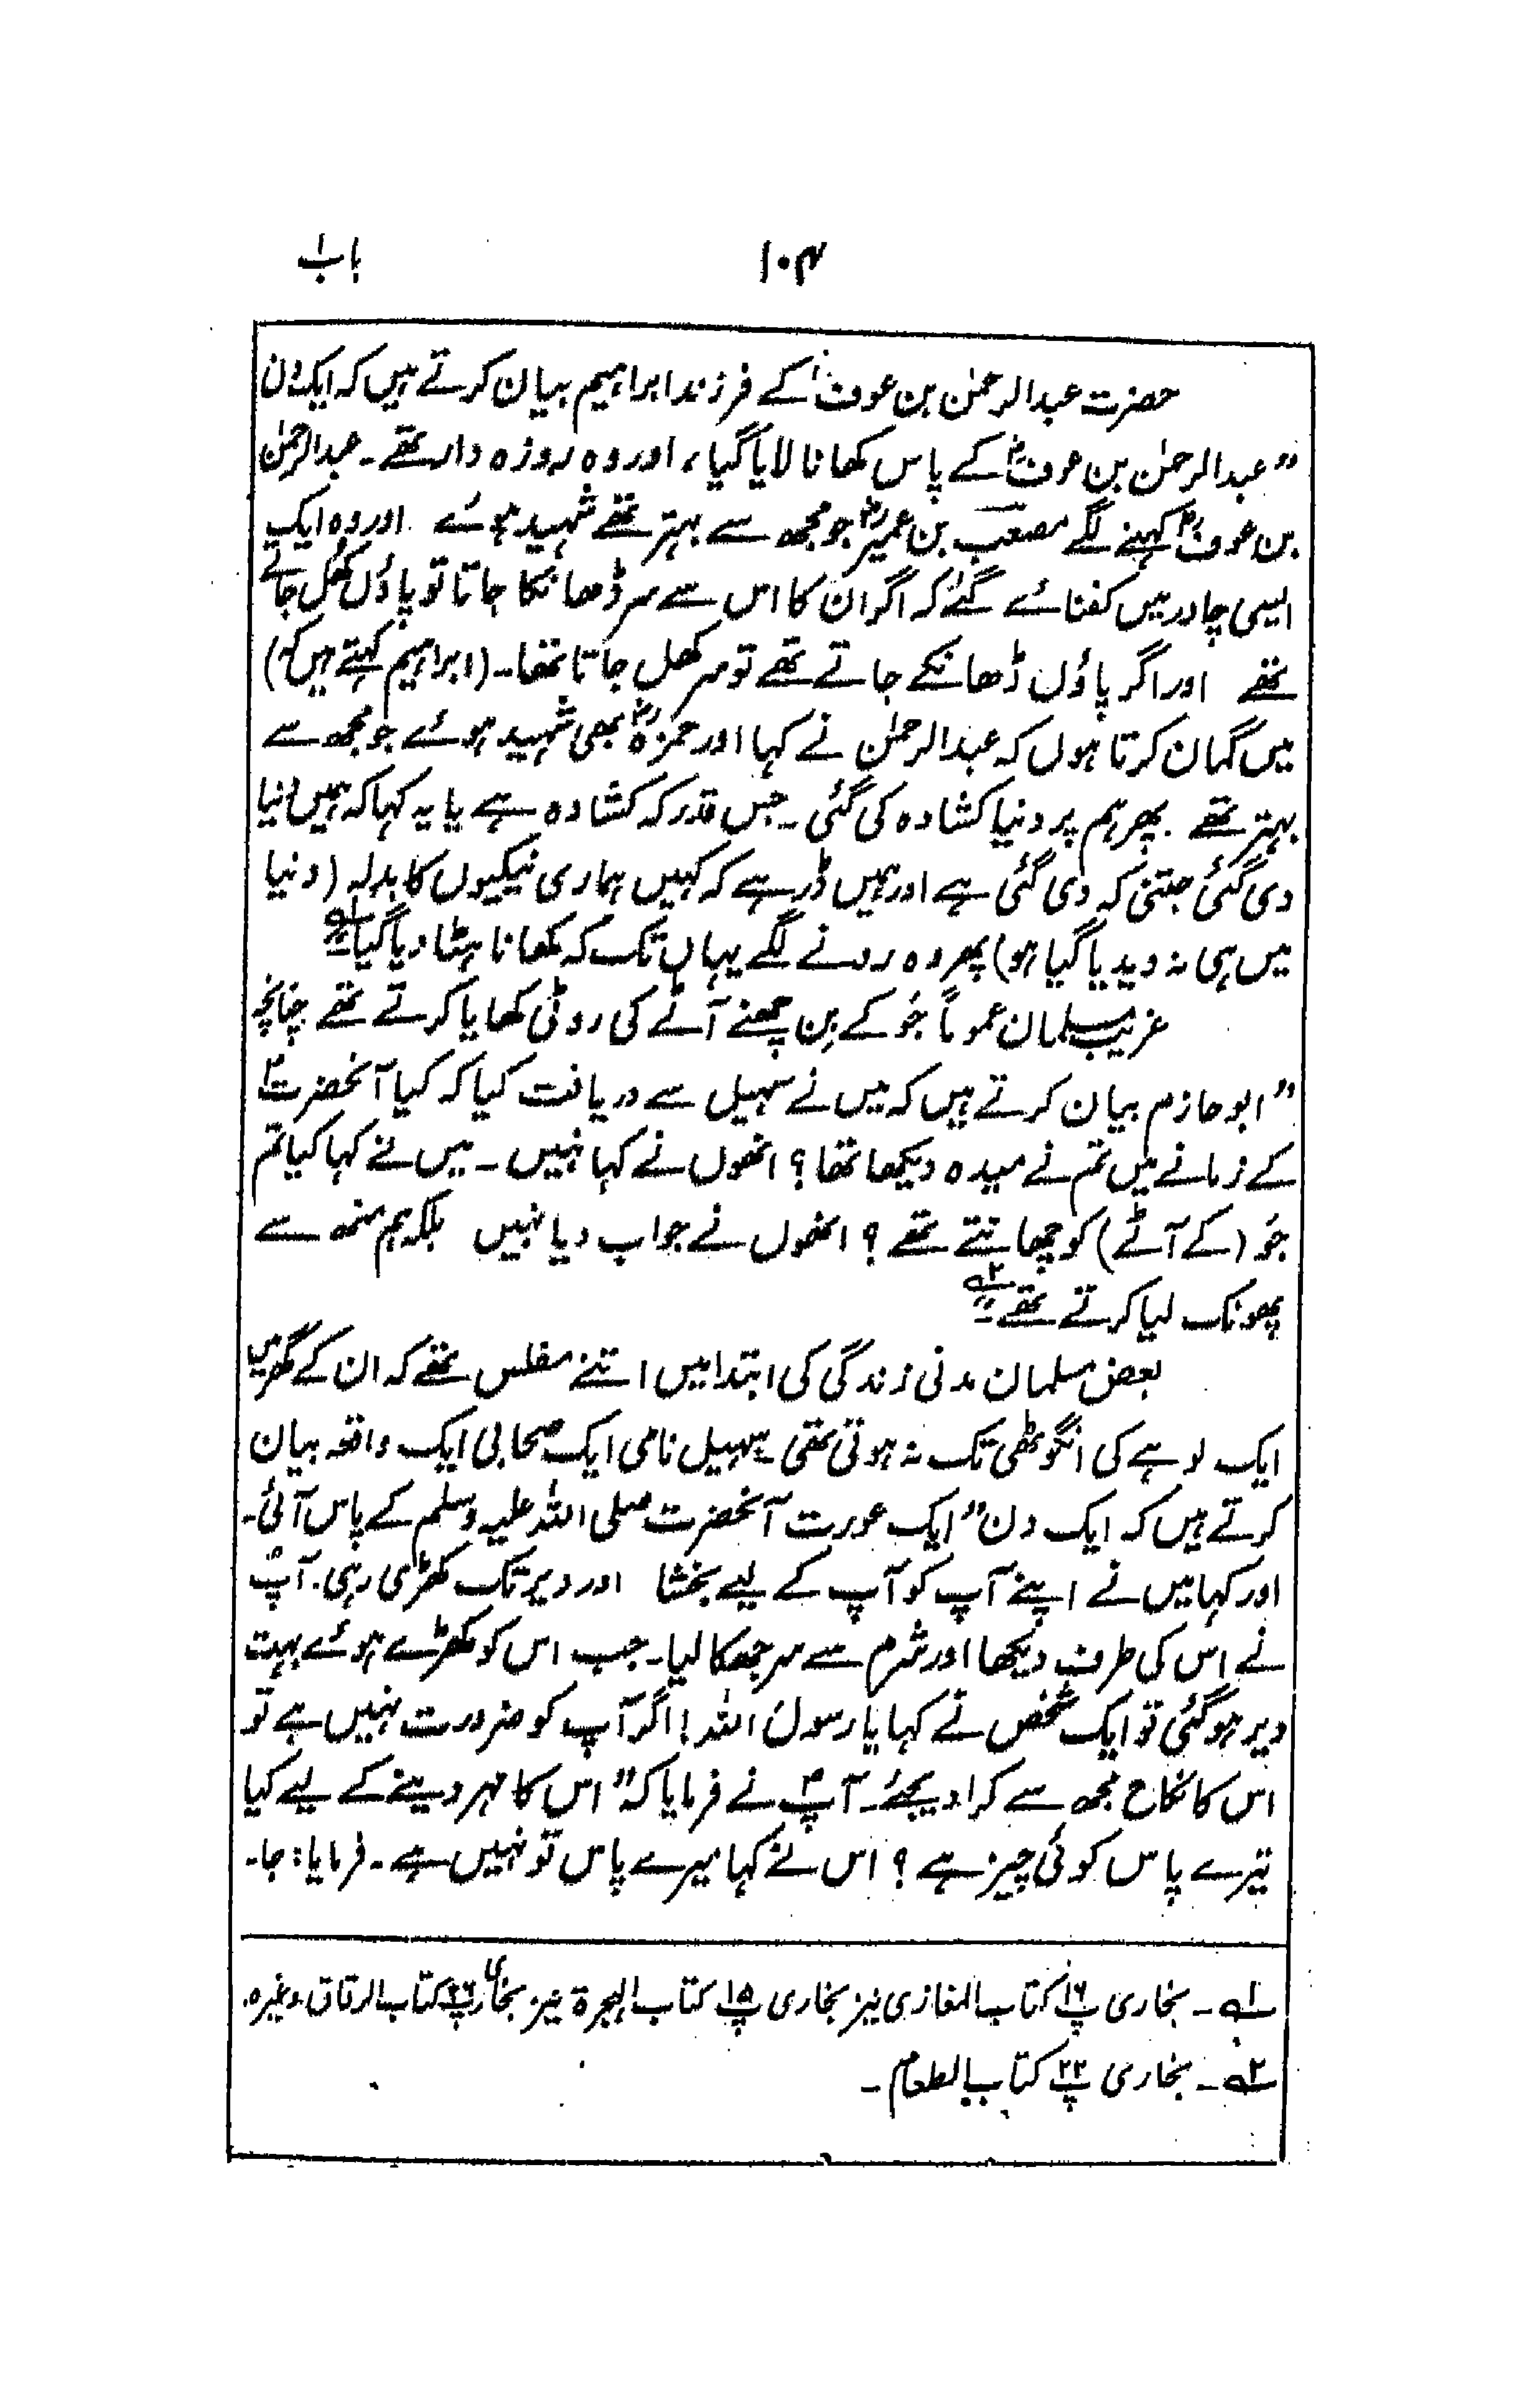 باب ۱
۱۰۴
حضرت عبدالرحمٰن بن عوفؓ کے فرزند ابراہیم بیان کرتے ہیں کہ ایک دن
”عبدالرحمٰن بن عوفؓ کے پاس کھانا لایا گیا، اور وہ روزہ دار تھے۔ عبدالرحمٰن
بن عوفؓ کہنے لگے مصعب بن عمیرؓ جو مجھ سے بہتر تھے شہید ہوئے اور وہ ایک
ایسی چادر میں کفنائے گئے کہ اگر ان کا اس سے سر ڈھانکا جاتا تو پاؤں کھل جاتے
تھے اور اگر پاؤں ڈھانکے جاتے تھے تو سر کھل جاتا تھا۔ (ابراہیم کہتے ہیں کہ)
میں گمان کرتا ہوں کہ عبدالرحمٰن نے کہا اور حمزہؓ بھی شہید ہوئے جو مجھ سے
بہتر تھے۔ پھر ہم پر دنیا کشادہ کی گئی۔ جس قدر کہ کشادہ ہے یا یہ کہا کہ ہمیں دنیا
دی گئی جتنی کہ دی گئی ہے اور ہمیں ڈر ہے کہ کہیں ہماری نیکیوں کا بدلہ (دنیا
میں ہی نہ دیدیا گیا ہو) پھر وہ رونے لگے یہاں تک کہ کھانا ہٹا دیا گیا“؎۱
غریب مسلمان عموماً جَو کے بِن چھنے آٹے کی روٹی کھایا کرتے تھے چنانچہ
”ابو حازم بیان کرتے ہیں کہ میں نے سہیل سے دریافت کیا کہ کیا آنحضرتؐ
کے زمانے میں تم نے میدہ دیکھا تھا؟ انھوں نے کہا نہیں۔ میں نے کہا کیا تم
جَو (کے آٹے) کو چھانتے تھے؟ انھوں نے جواب دیا نہیں بلکہ ہم منھ سے
پھونک لیا کرتے تھے۔“؎۲
بعض مسلمان مدنی زندگی کی ابتدا میں اتنے مفلس تھے کہ ان کے گھر میں
ایک لوہے کی انگوٹھی تک نہ ہوتی تھی۔ سہیل نامی ایک صحابی ایک واقعہ بیان
کرتے ہیں کہ ایک دن ”ایک عورت آنحضرت صلی اللہ علیہ وسلم کے پاس آئی۔
اور کہا میں نے اپنے آپ کو آپ کے لیے بخشا اور دیر تک کھڑی رہی۔ آپؐ
نے اس کی طرف دیکھا اور شرم سے سر جھکا لیا۔ جب اس کو کھڑے ہوئے بہت
دیر ہوگئی تو ایک شخص نے کہا یا رسول اللہ! اگر آپ کو ضرورت نہیں ہے تو
اس کا نکاح مجھ سے کرا دیجئے۔ آپؐ نے فرمایا کہ ”اس کا مہر دینے کے لیے کیا
تیرے پاس کوئی چیز ہے؟ اس نے کہا میرے پاس تو نہیں ہے۔ فرمایا: جا۔
؎۱۔ بخاری پ۱۶ کتاب المغازی نیز بخاری پ۱۵ کتاب الہجرۃ نیز بخاری پ۲۶ کتاب الرقاق وغیرہ۔
؎۲۔ بخاری پ۲۲ کتاب الطعام۔